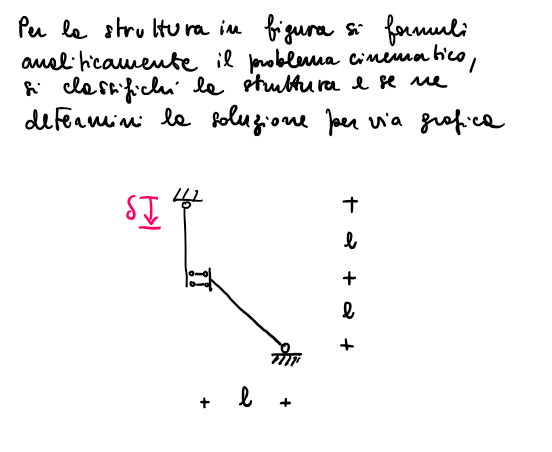 Per la struttura in figura si formuli
analiticamente il problema cinematico,
si classifichi la struttura e se ne
determini la soluzione per via grafica
δ
l
l
l